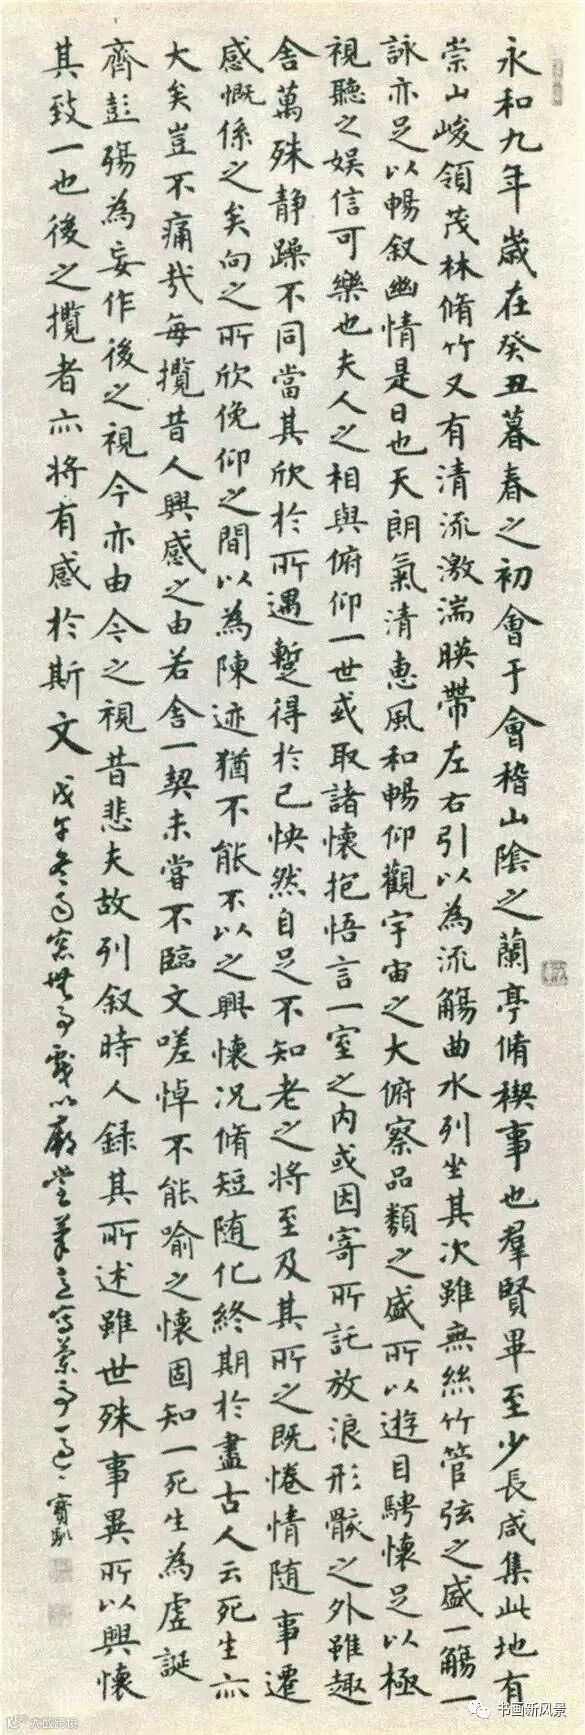 永和九年歲在癸丑暮春之初會于會稽山陰之蘭亭脩稧事也羣賢畢至少長咸集此地有
崇山峻領茂林脩竹又有清流激湍暎帶左右引以為流觴曲水列坐其次雖無絲竹管弦之盛一觴一
詠亦足以暢叙幽情是日也天朗氣清惠風和暢仰觀宇宙之大俯察品類之盛所以遊目騁懷足以極
視聽之娛信可樂也夫人之相與俯仰一世或取諸懷抱悟言一室之內或因寄所託放浪形骸之外雖趣
舍萬殊静躁不同當其欣於所遇蹔得於己怏然自足不知老之将至及其所之既惓情随事遷
感慨係之矣向之所欣俛仰之間以為陳迹猶不能不以之興懷況脩短随化終期於盡古人云死生亦
大矣豈不痛哉每攬昔人興感之由若合一契未嘗不臨文嗟悼不能喻之懷固知一死生為虛誕
齊彭殤為妄作後之視今亦由今之視昔悲夫故列叙時人録其所述雖世殊事異所以興懷
其致一也後之攬者亦将有感於斯文 戊午冬日窓無事戲以廟堂筆意寫蘭亭一過 寶熙
大啟跨境
书画新风景